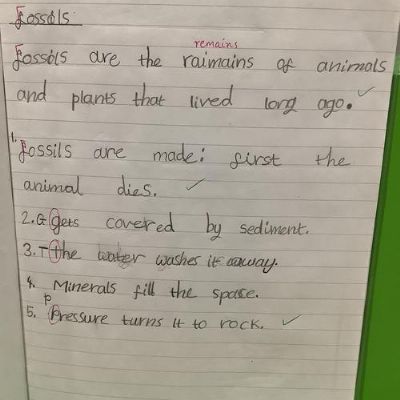 Fossils
remains
Fossils are the raimains of animals
and plants that lived long ago.
1. Fossils are made: first the
animal dies.
2. G gets covered by sediment.
3. T the water washes it away.
4. Minerals fill the space.
p
5. Pressure turns it to rock.